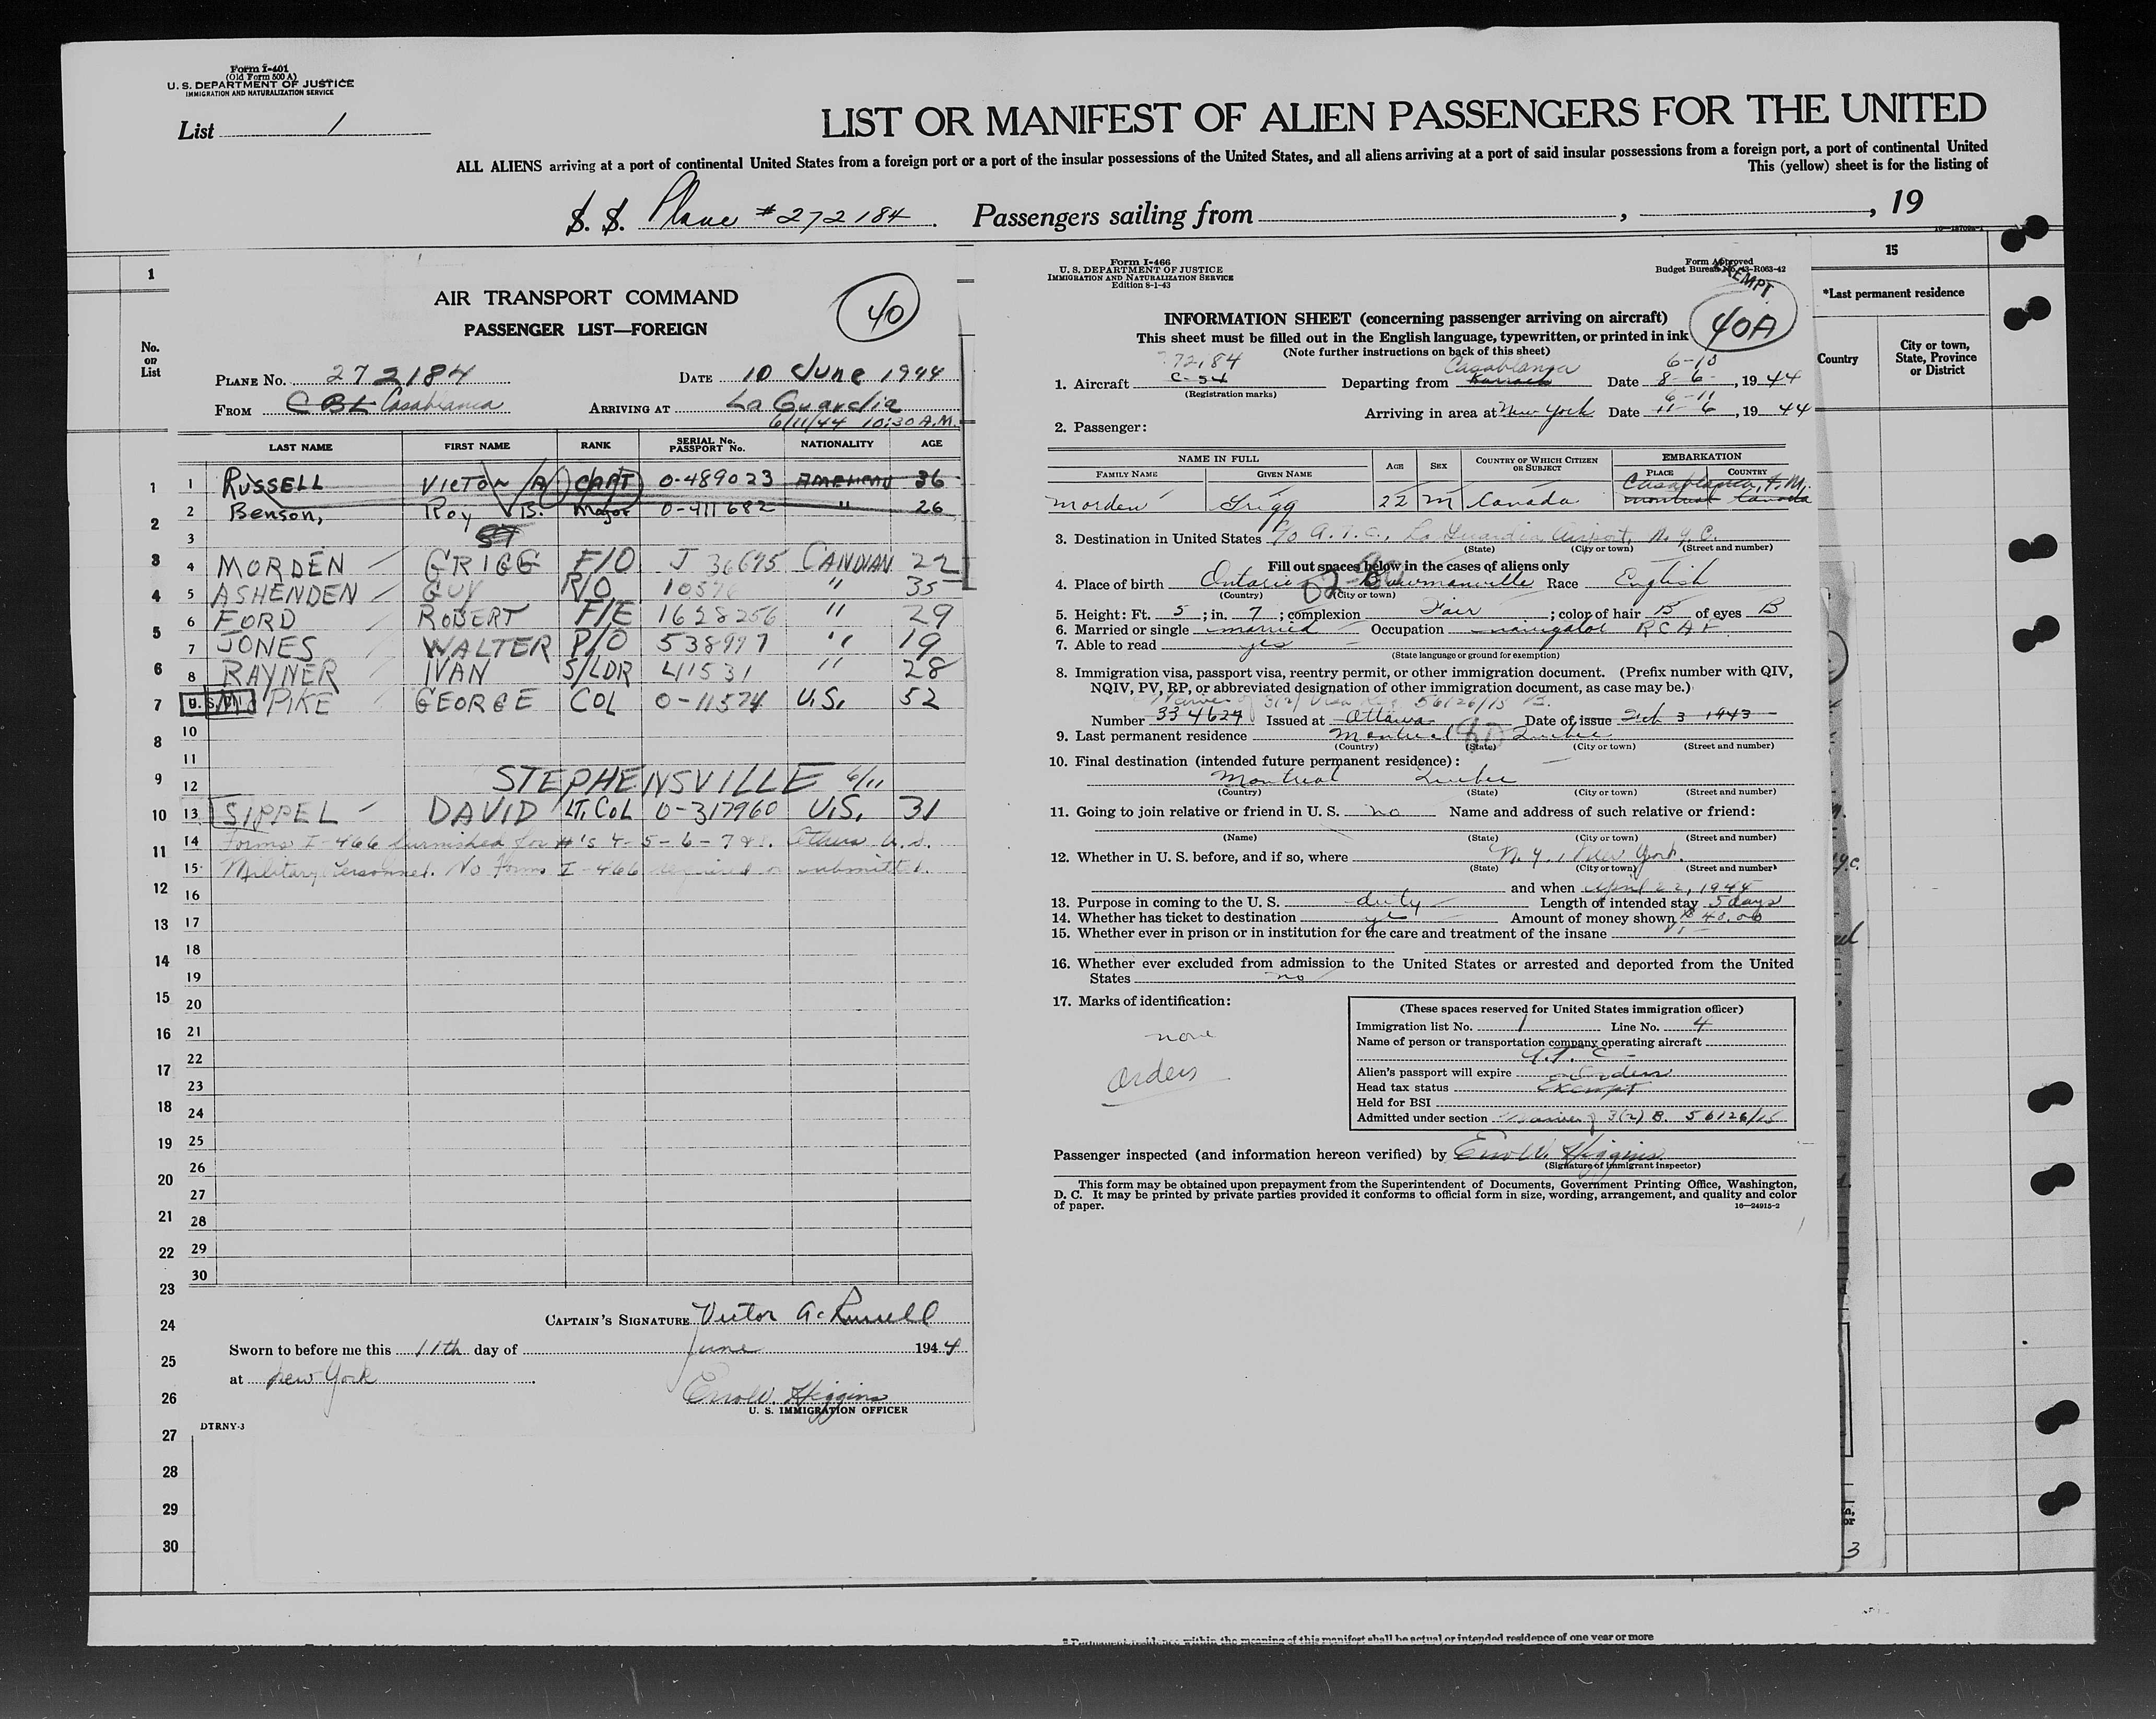 Form I-401
(Old Form 500 A)
U. S. DEPARTMENT OF JUSTICE
IMMIGRATION AND NATURALIZATION SERVICE
List 1
LIST OR MANIFEST OF ALIEN PASSENGERS FOR THE UNITED
ALL ALIENS arriving at a port of continental United States from a foreign port or a port of the insular possessions of the United States, and all aliens arriving at a port of said insular possessions from a foreign port, a port of continental United
This (yellow) sheet is for the listing of
S. S. Plane #272184. Passengers sailing from , , 19
1
No. on List
AIR TRANSPORT COMMAND
40
PASSENGER LIST—FOREIGN
PLANE No. 272184 DATE 10 June 1944
FROM CBL Casablanca ARRIVING AT La Guardia
6/11/44 10:30 A.M.
LAST NAME FIRST NAME RANK SERIAL No. PASSPORT No. NATIONALITY AGE
1 RUSSELL VICTOR A CAPT 0-489023 AMERICAN 36
2 Benson, Roy B. Major 0-411682 " 26
3
4 MORDEN GRIGG F/O J 36695 CANDIAN 22
5 ASHENDEN GUY R/O " 35
6 FORD ROBERT F/E 1628256 " 29
7 JONES WALTER P/O 538997 " 19
8 RAYNER IVAN S/LDR 411531 " 28
9 Mc PIKE GEORGE COL 0-11574 U.S. 52
10
11
12 STEPHENSVILLE 6/11
13 SIPPEL DAVID LT. COL 0-317960 U.S. 31
14 Forms I-466 furnished for #'s 4-5-6-7&8. Others U.S.
15 Military Personnel. No Forms I-466 required or submitted.
16
17
18
19
20
21
22
23
24
25
26
27
28
29
30
CAPTAIN'S SIGNATURE Victor A. Russell
Sworn to before me this 11th day of June 1944
at New York
Errol W. Higgins
U. S. IMMIGRATION OFFICER
DTRNY-3
1
2
3
4
5
6
7
8
9
10
11
12
13
14
15
16
17
18
19
20
21
22
23
24
25
26
27
28
29
30
Form I-466
U. S. DEPARTMENT OF JUSTICE
IMMIGRATION AND NATURALIZATION SERVICE
Edition 8-1-43
Form Approved
Budget Bureau No. 43-R063-42
EXEMPT
40A
INFORMATION SHEET (concerning passenger arriving on aircraft)
This sheet must be filled out in the English language, typewritten, or printed in ink
(Note further instructions on back of this sheet)
272184 Casablanca 6-10
1. Aircraft C-54 Departing from Karachi Date 8-6-, 1944
(Registration marks)
6-11
Arriving in area at New York Date 11-6, 1944
2. Passenger:
NAME IN FULL AGE SEX COUNTRY OF WHICH CITIZEN OR SUBJECT EMBARKATION
FAMILY NAME GIVEN NAME PLACE COUNTRY
Casablanca, F. M.
Morden Grigg 22 M Canada Montreal Canada
3. Destination in United States c/o A.T.C., La Guardia Airport, N.Y.C.
(State) (City or town) (Street and number)
Fill out spaces below in the cases of aliens only
4. Place of birth Ontario Bowmanville Race English
(Country) (City or town)
5. Height: Ft. 5; in. 7; complexion Fair; color of hair B of eyes B
6. Married or single married Occupation navigator RCAF
7. Able to read yes
(State language or ground for exemption)
8. Immigration visa, passport visa, reentry permit, or other immigration document. (Prefix number with QIV,
NQIV, PV, RP, or abbreviated designation of other immigration document, as case may be.)
Waiver of 3(2) Visa 56126/15
Number 334629 Issued at Ottawa Date of issue Feb 3 1943
9. Last permanent residence Montreal Quebec
(Country) (State) (City or town) (Street and number)
10. Final destination (intended future permanent residence):
Montreal Quebec
(Country) (State) (City or town) (Street and number)
11. Going to join relative or friend in U. S. no Name and address of such relative or friend:
(Name) (State) (City or town) (Street and number)
12. Whether in U. S. before, and if so, where N.Y., New York.
(State) (City or town) (Street and number)
and when April 22, 1944
13. Purpose in coming to the U. S. duty Length of intended stay 5 days
14. Whether has ticket to destination yes Amount of money shown $40.00
15. Whether ever in prison or in institution for the care and treatment of the insane
16. Whether ever excluded from admission to the United States or arrested and deported from the United
States no
17. Marks of identification:
none
Orders
(These spaces reserved for United States immigration officer)
Immigration list No. 1 Line No. 4
Name of person or transportation company operating aircraft
A.T.C.
Alien's passport will expire Orders
Head tax status Exempt
Held for BSI
Admitted under section Waiver of 3(2) B. 56126/15
Passenger inspected (and information hereon verified) by Errol W. Higgins
(Signature of immigrant inspector)
This form may be obtained upon prepayment from the Superintendent of Documents, Government Printing Office, Washington,
D. C. It may be printed by private parties provided it conforms to official form in size, wording, arrangement, and quality and color
of paper.
16—24915-2
15
*Last permanent residence
Country City or town, State, Province or District
3
* Permanent residence within the meaning of this manifest shall be actual or intended residence of one year or more